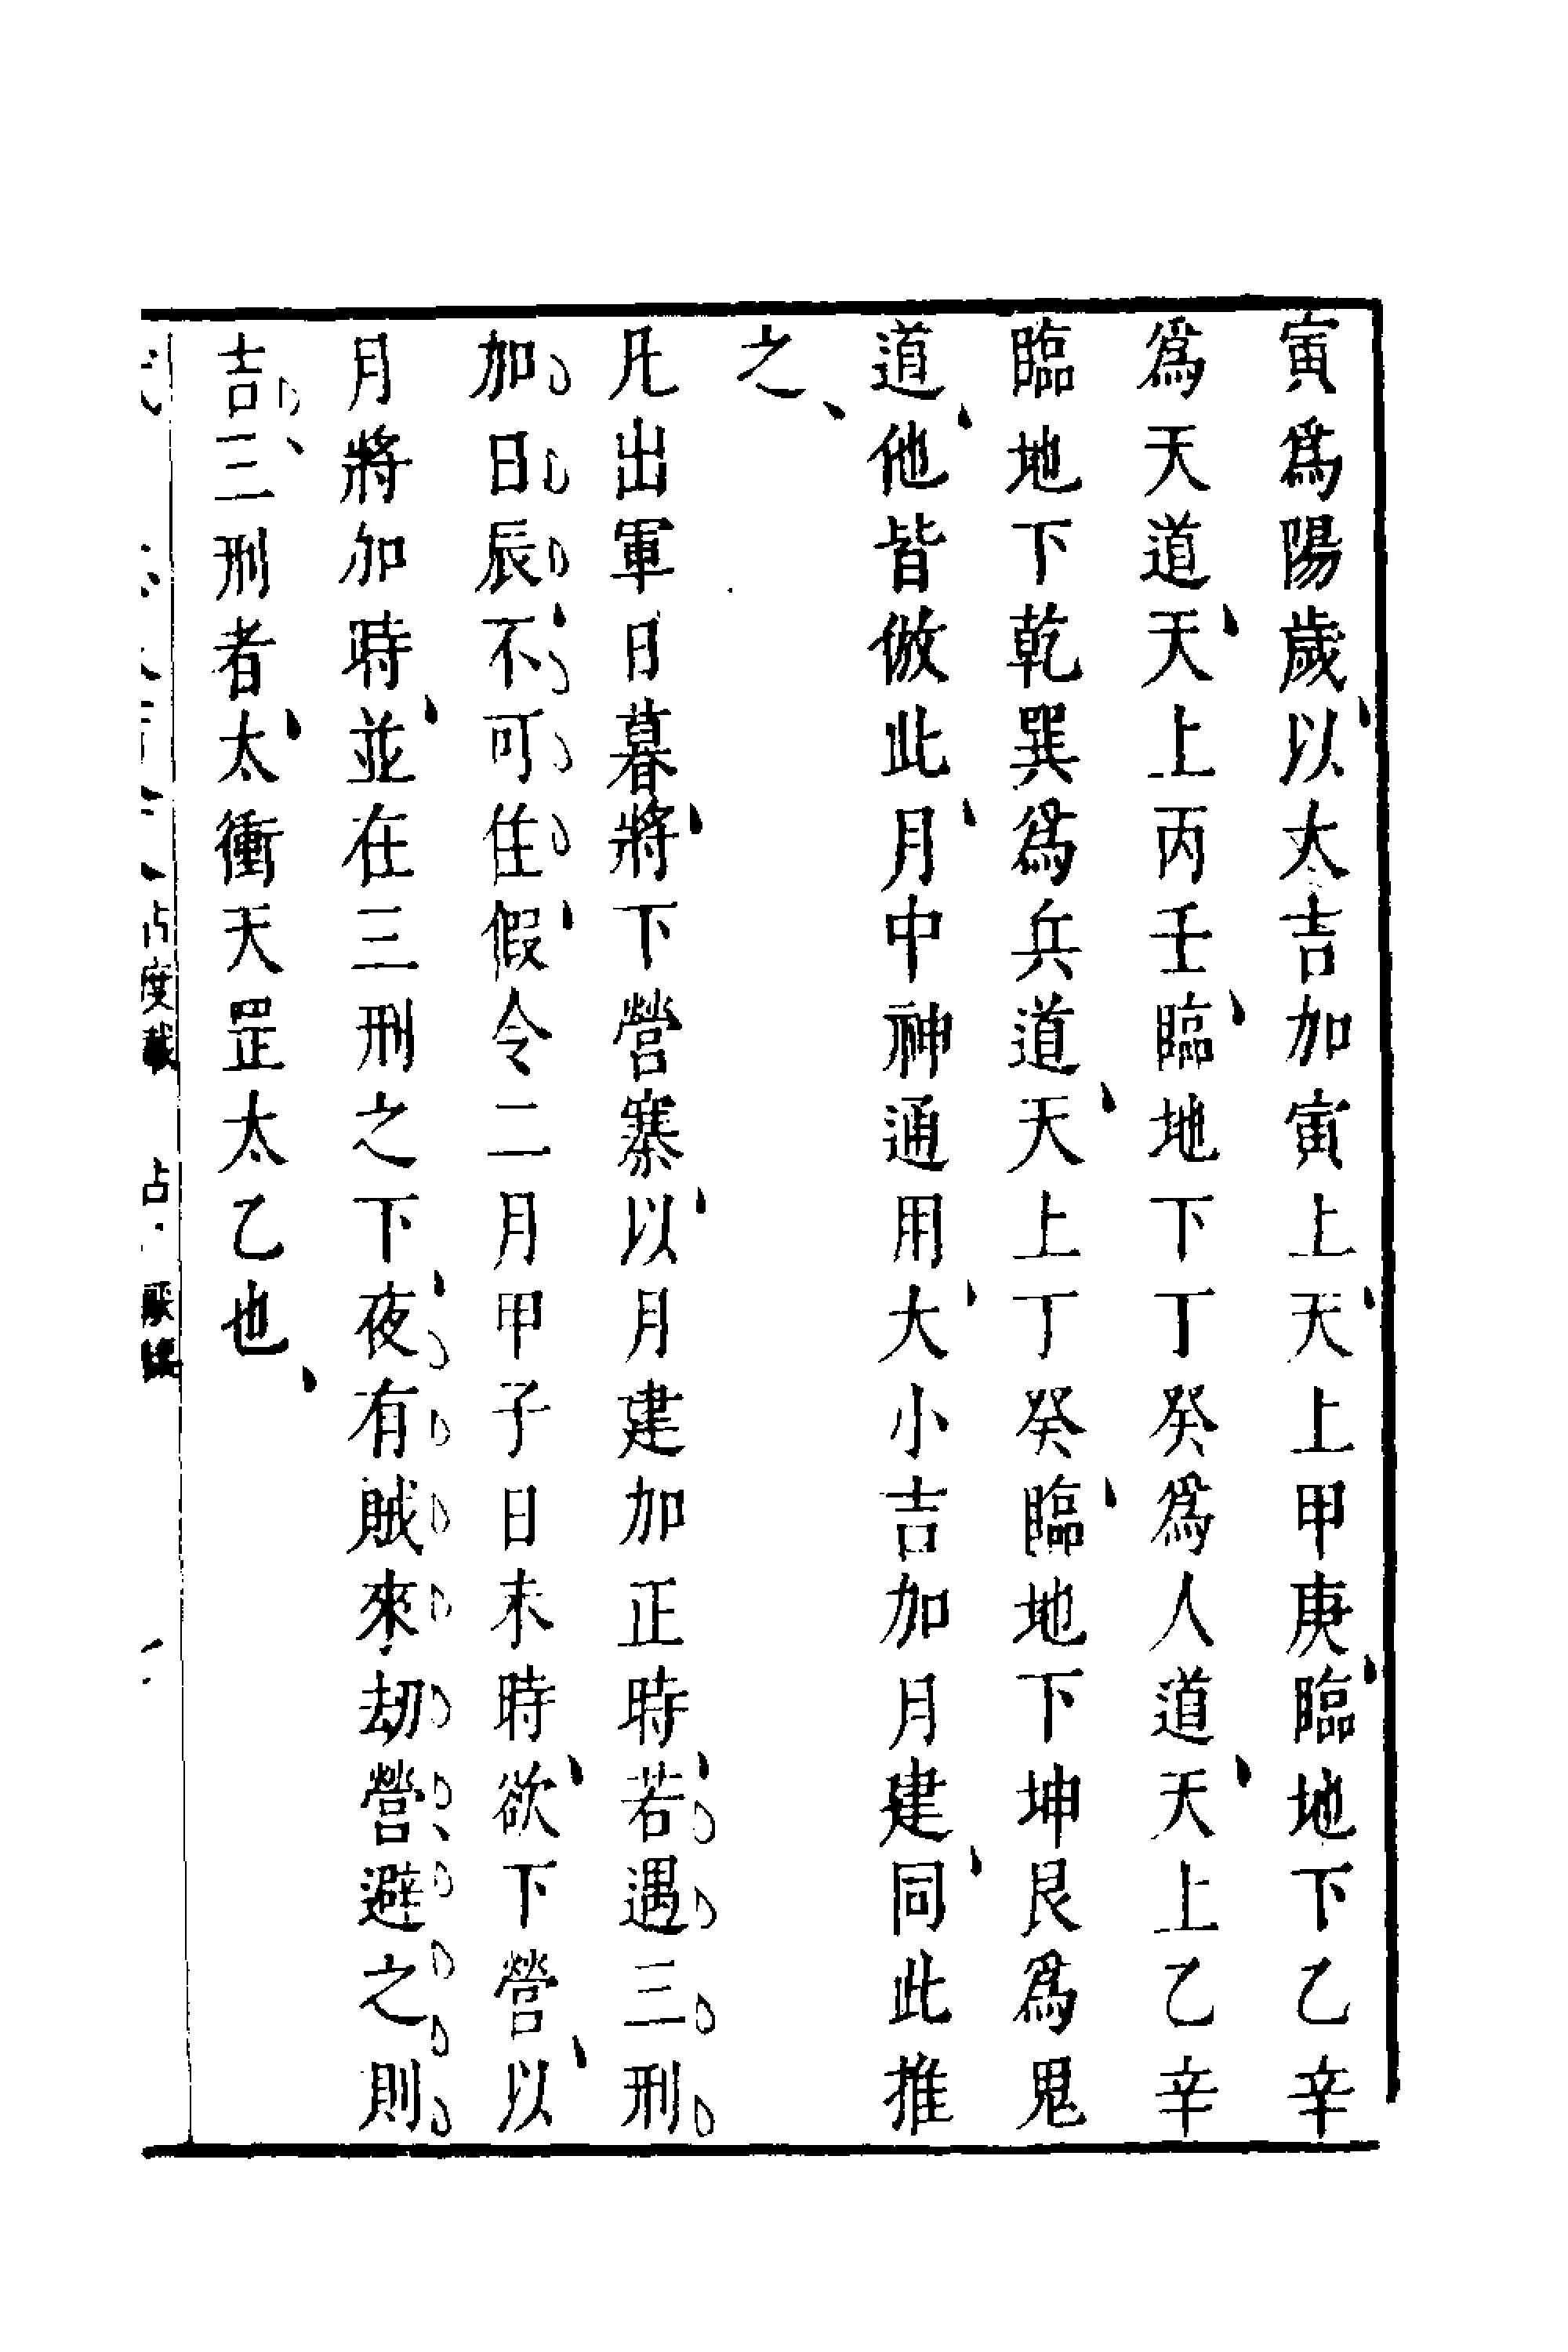 寅爲陽歲、以大吉加寅上、天上甲庚、臨地下乙辛
爲天道、天上丙壬、臨地下丁癸爲人道、天上乙辛
臨地下乾巽爲兵道、天上丁癸、臨地下坤艮爲鬼
道、他皆倣此、月中神通用、大小吉加月建、同此推
之、
凡出軍日暮、將下營寨、以月建加正時、若遇三刑
加日辰、不可住、假令二月甲子日未時、欲下營、以
月將加時、並在三刑之下、夜有賊來劫營、避之則
吉、三刑者、太衝天罡太乙也、
占度載 占